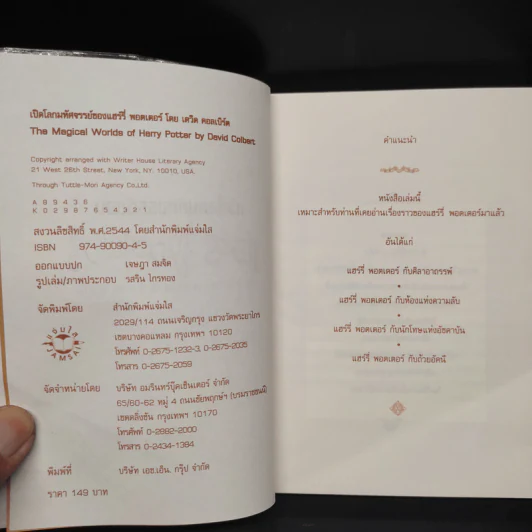 เปิดโลกมหัศจรรย์ของแฮร์รี่ พอตเตอร์ โดย เดวิด คอลเบิร์ต
The Magical Worlds of Harry Potter by David Colbert
Copyright arranged with Writer House Literary Agency
21 West 26th Street, New York, NY. 10010, USA.
Through Tuttle-Mori Agency Co.,Ltd.
A 8 9 4 3 6
K 0 2 9 8 7 6 5 4 3 2 1
สงวนลิขสิทธิ์ พ.ศ.2544 โดยสำนักพิมพ์แจ่มใส
ISBN 974-90090-4-5
ออกแบบปก เจษฎา สมจิต
รูปเล่ม/ภาพประกอบ รสริน ไกรทอง
จัดพิมพ์โดย สำนักพิมพ์แจ่มใส
2029/114 ถนนเจริญกรุง แขวงวัดพระยาไกร
เขตบางคอแหลม กรุงเทพฯ 10120
โทรศัพท์ 0-2675-1232-3, 0-2675-2035
โทรสาร 0-2675-2059
แจ่มใส
JAMSAI
จัดจำหน่ายโดย บริษัท อมรินทร์บุ๊คเซ็นเตอร์ จำกัด
65/60-62 หมู่ 4 ถนนชัยพฤกษ์ฯ (บรมราชชนนี)
เขตตลิ่งชัน กรุงเทพฯ 10170
โทรศัพท์ 0-2882-2000
โทรสาร 0-2434-1384
พิมพ์ที่ บริษัท เอช.เอ็น. กรุ๊ป จำกัด
ราคา 149 บาท
คำแนะนำ
หนังสือเล่มนี้
เหมาะสำหรับท่านที่เคยอ่านเรื่องราวของแฮร์รี่ พอตเตอร์มาแล้ว
อันได้แก่
แฮร์รี่ พอตเตอร์ กับศิลาอาถรรพ์
•
แฮร์รี่ พอตเตอร์ กับห้องแห่งความลับ
•
แฮร์รี่ พอตเตอร์ กับนักโทษแห่งอัซคาบัน
•
แฮร์รี่ พอตเตอร์ กับถ้วยอัคนี